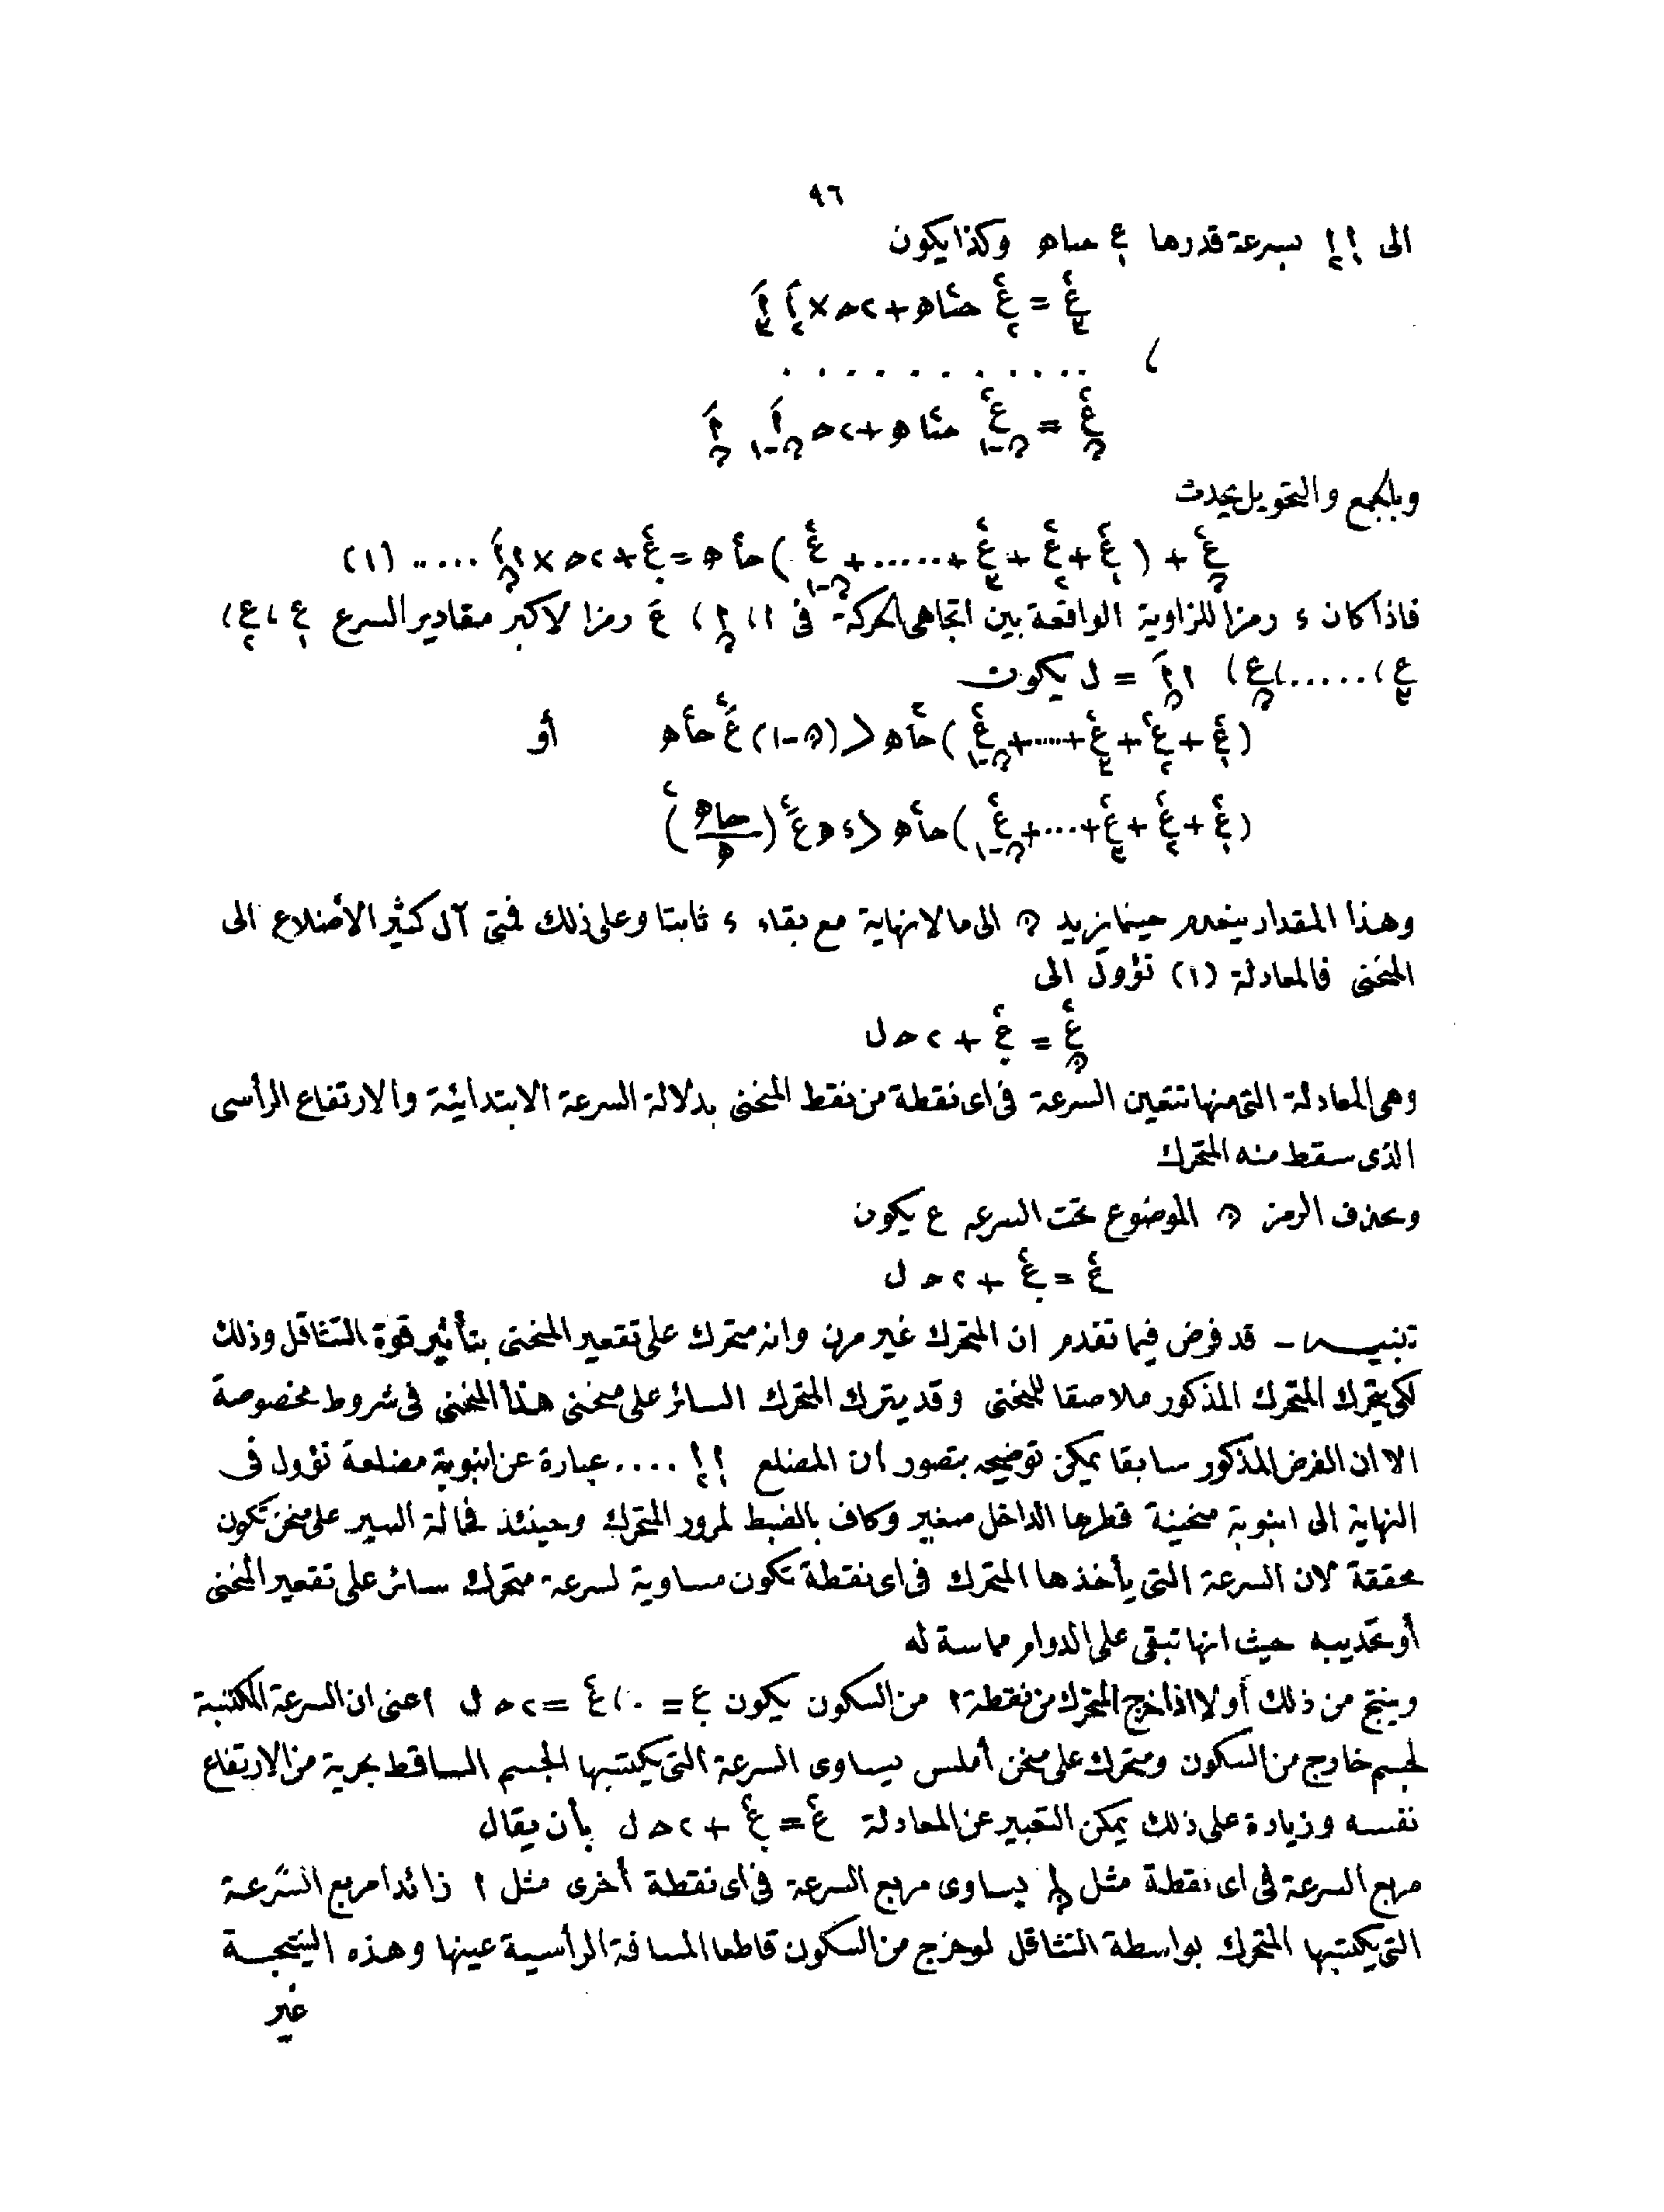 ٩٦
الى ا₁ ا₂ بسرعة قدرها ع₁ حتاه وكذا يكون
ع₃² = ع₂² حتا²ه + ٢ح × اَ₂ اَ₃
، . . . . . . . . . . .
عₙ² = ع²ₙ₋₁ حتا²ه + ٢ح اَₙ₋₁ اَₙ
وبالجمع والتحويل يحدث
عₙ² + (ع₁² + ع₂² + ع₃² + ...... + ع²ₙ₋₁) حا²ه = ع.² + ٢ح × ا اَₙ ..... (١)
فاذا كان ء رمزا للزاوية الواقعة بين اتجاهى الحركة فى ا ، اₙ ، عَ رمزا لاكبر مقادير السرع ع₁ ، ع₂ ،
ع₃ ، ..... ، عₙ ، ا اَₙ = ل يكون
(ع₁² + ع₂² + ع₃² + .... + ع²ₙ₋₁) حا²ه < (ن-١) عَ² حا²ه أو
(ع₁² + ع₂² + ع₃² + ... + ع²ₙ₋₁) حا²ه < ء ه عَ² (حاه/ه)²
وهذا المقدار ينعدم حينما يزيد ن الى مالانهاية مع بقاء ء ثابتا وعلى ذلك فمتى آل كثير الأضلاع الى
المنحنى فالمعادلة (١) تؤول الى
عₙ² = ع.² + ٢ح ل
وهى المعادلة التى منها تتعين السرعة فى اى نقطة من نقط المنحنى بدلالة السرعة الابتدائية والارتفاع الرأسى
الذى سقط منه المتحرك
وبحذف الرمز ن الموضوع تحت السرعه ع يكون
ع² = ع.² + ٢ح ل
تنبيه - قد فرض فيما تقدم ان المتحرك غير مرن وانه متحرك على تقعير المنحنى بتأثير قوة التثاقل وذلك
لكى يتحرك المتحرك المذكور ملاصقا للمنحنى وقد يترك المتحرك السائر على منحنى هذا المنحنى فى شروط مخصوصة
الا ان الفرض المذكور سابقا يمكن توضيحه بتصور ان المضلع ا₁ ا₂ .... عبارة عن انبوبة مضلعة تؤول فى
النهاية الى انبوبة منحنية قطرها الداخل صغير وكاف بالضبط لمرور المتحرك وحينئذ فحالة السير على منحن تكون
محققة لان السرعة التى يأخذها المتحرك فى اى نقطة تكون مساوية لسرعة متحرك سائر على تقعير المنحنى
أو تحديبه حيث انها تبقى على الدوام مماسة له
وينتج من ذلك أولا اذا خرج المتحرك من نقطة ا من السكون يكون ع. = ٠ ، ع² = ٢ح ل اعنى ان السرعة المكتسبة
لجسم خارج من السكون ومتحرك على منحن أملس يساوى السرعة التى يكتسبها الجسم الساقط بحرية من الارتفاع
نفسه وزيادة على ذلك يمكن التعبير عن المعادلة ع² = ع.² + ٢ح ل بأن يقال
مربع السرعة فى اى نقطة مثل اₙ يساوى مربع السرعة فى اى نقطة أخرى مثل ا زائدا مربع السرعة
التى يكتسبها المتحرك بواسطة التثاقل لو خرج من السكون قاطعا المسافة الرأسية عينها وهذه النتيجة
غير